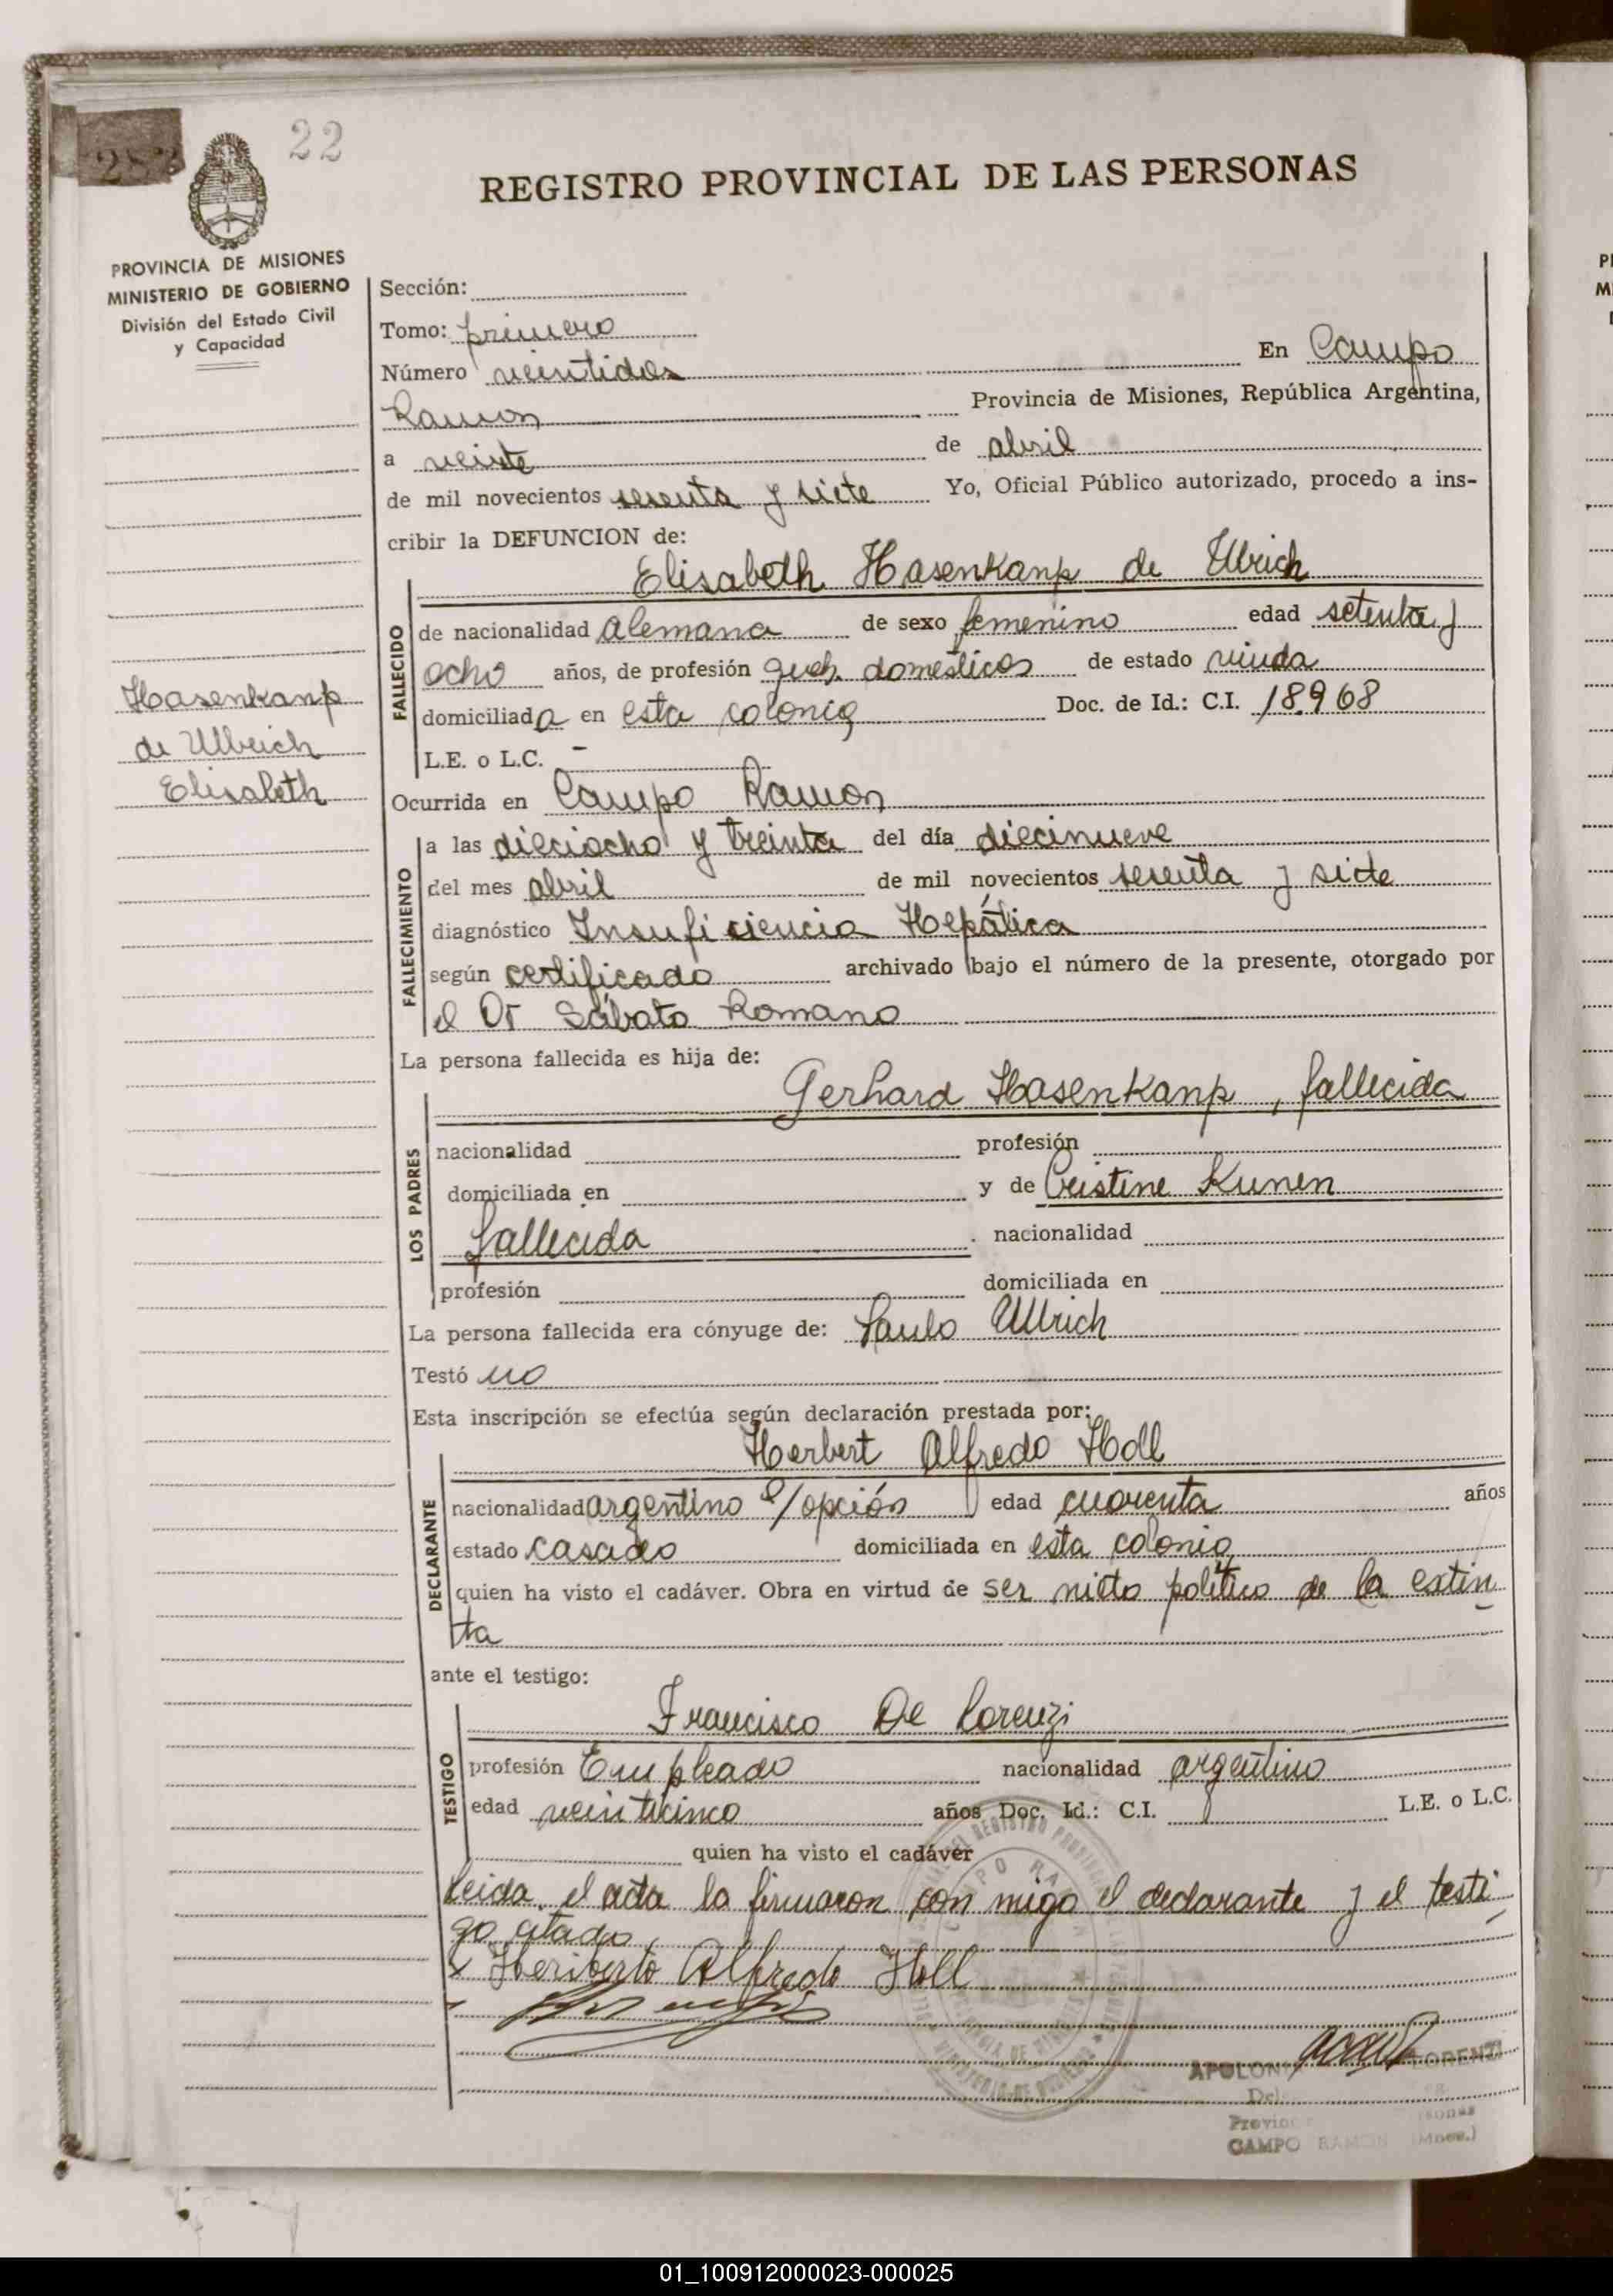 22
REGISTRO PROVINCIAL DE LAS PERSONAS
PROVINCIA DE MISIONES
MINISTERIO DE GOBIERNO
División del Estado Civil
y Capacidad
Sección:
Tomo: primero
Número veintidos En Campo
Ramon Provincia de Misiones, República Argentina,
a veinte de abril
de mil novecientos sesenta y siete Yo, Oficial Público autorizado, procedo a ins-
cribir la DEFUNCION de:
Elisabeth Hasenkanp de Ulbrich
FALLECIDO
de nacionalidad Alemana de sexo femenino edad setenta y
ocho años, de profesión queh. domesticos de estado viuda
domiciliada en esta colonia Doc. de Id.: C.I. 18.968
L.E. o L.C. -
Hasenkanp
de Ulbrich
Elisabeth
Ocurrida en Campo Ramon
FALLECIMIENTO
a las dieciocho y treinta del día diecinueve
del mes abril de mil novecientos sesenta y siete
diagnóstico Insuficiencia Hepática
según certificado archivado bajo el número de la presente, otorgado por
el Dr Sábato Romano
La persona fallecida es hija de:
Gerhard Hasenkanp, fallecida
LOS PADRES
nacionalidad profesión
domiciliada en y de Cristine Kunen
fallecida . nacionalidad
profesión domiciliada en
La persona fallecida era cónyuge de: Paulo Ulbrich
Testó no
Esta inscripción se efectúa según declaración prestada por:
Herbert Alfredo Holl
DECLARANTE
nacionalidad argentino p/opción edad cuarenta años
estado casado domiciliada en esta colonia
quien ha visto el cadáver. Obra en virtud de ser nieto político de la extin-
ta
ante el testigo:
Francisco De Lorenzi
TESTIGO
profesión Empleado nacionalidad argentino
edad veinticinco años Doc. Id.: C.I. L.E. o L.C.
quien ha visto el cadáver
Leida el acta la firmaron con migo el declarante y el testi-
go citado
x Heriberto Alfredo Holl
CAMPO RAMON (Mnes.)
01_100912000023-000025